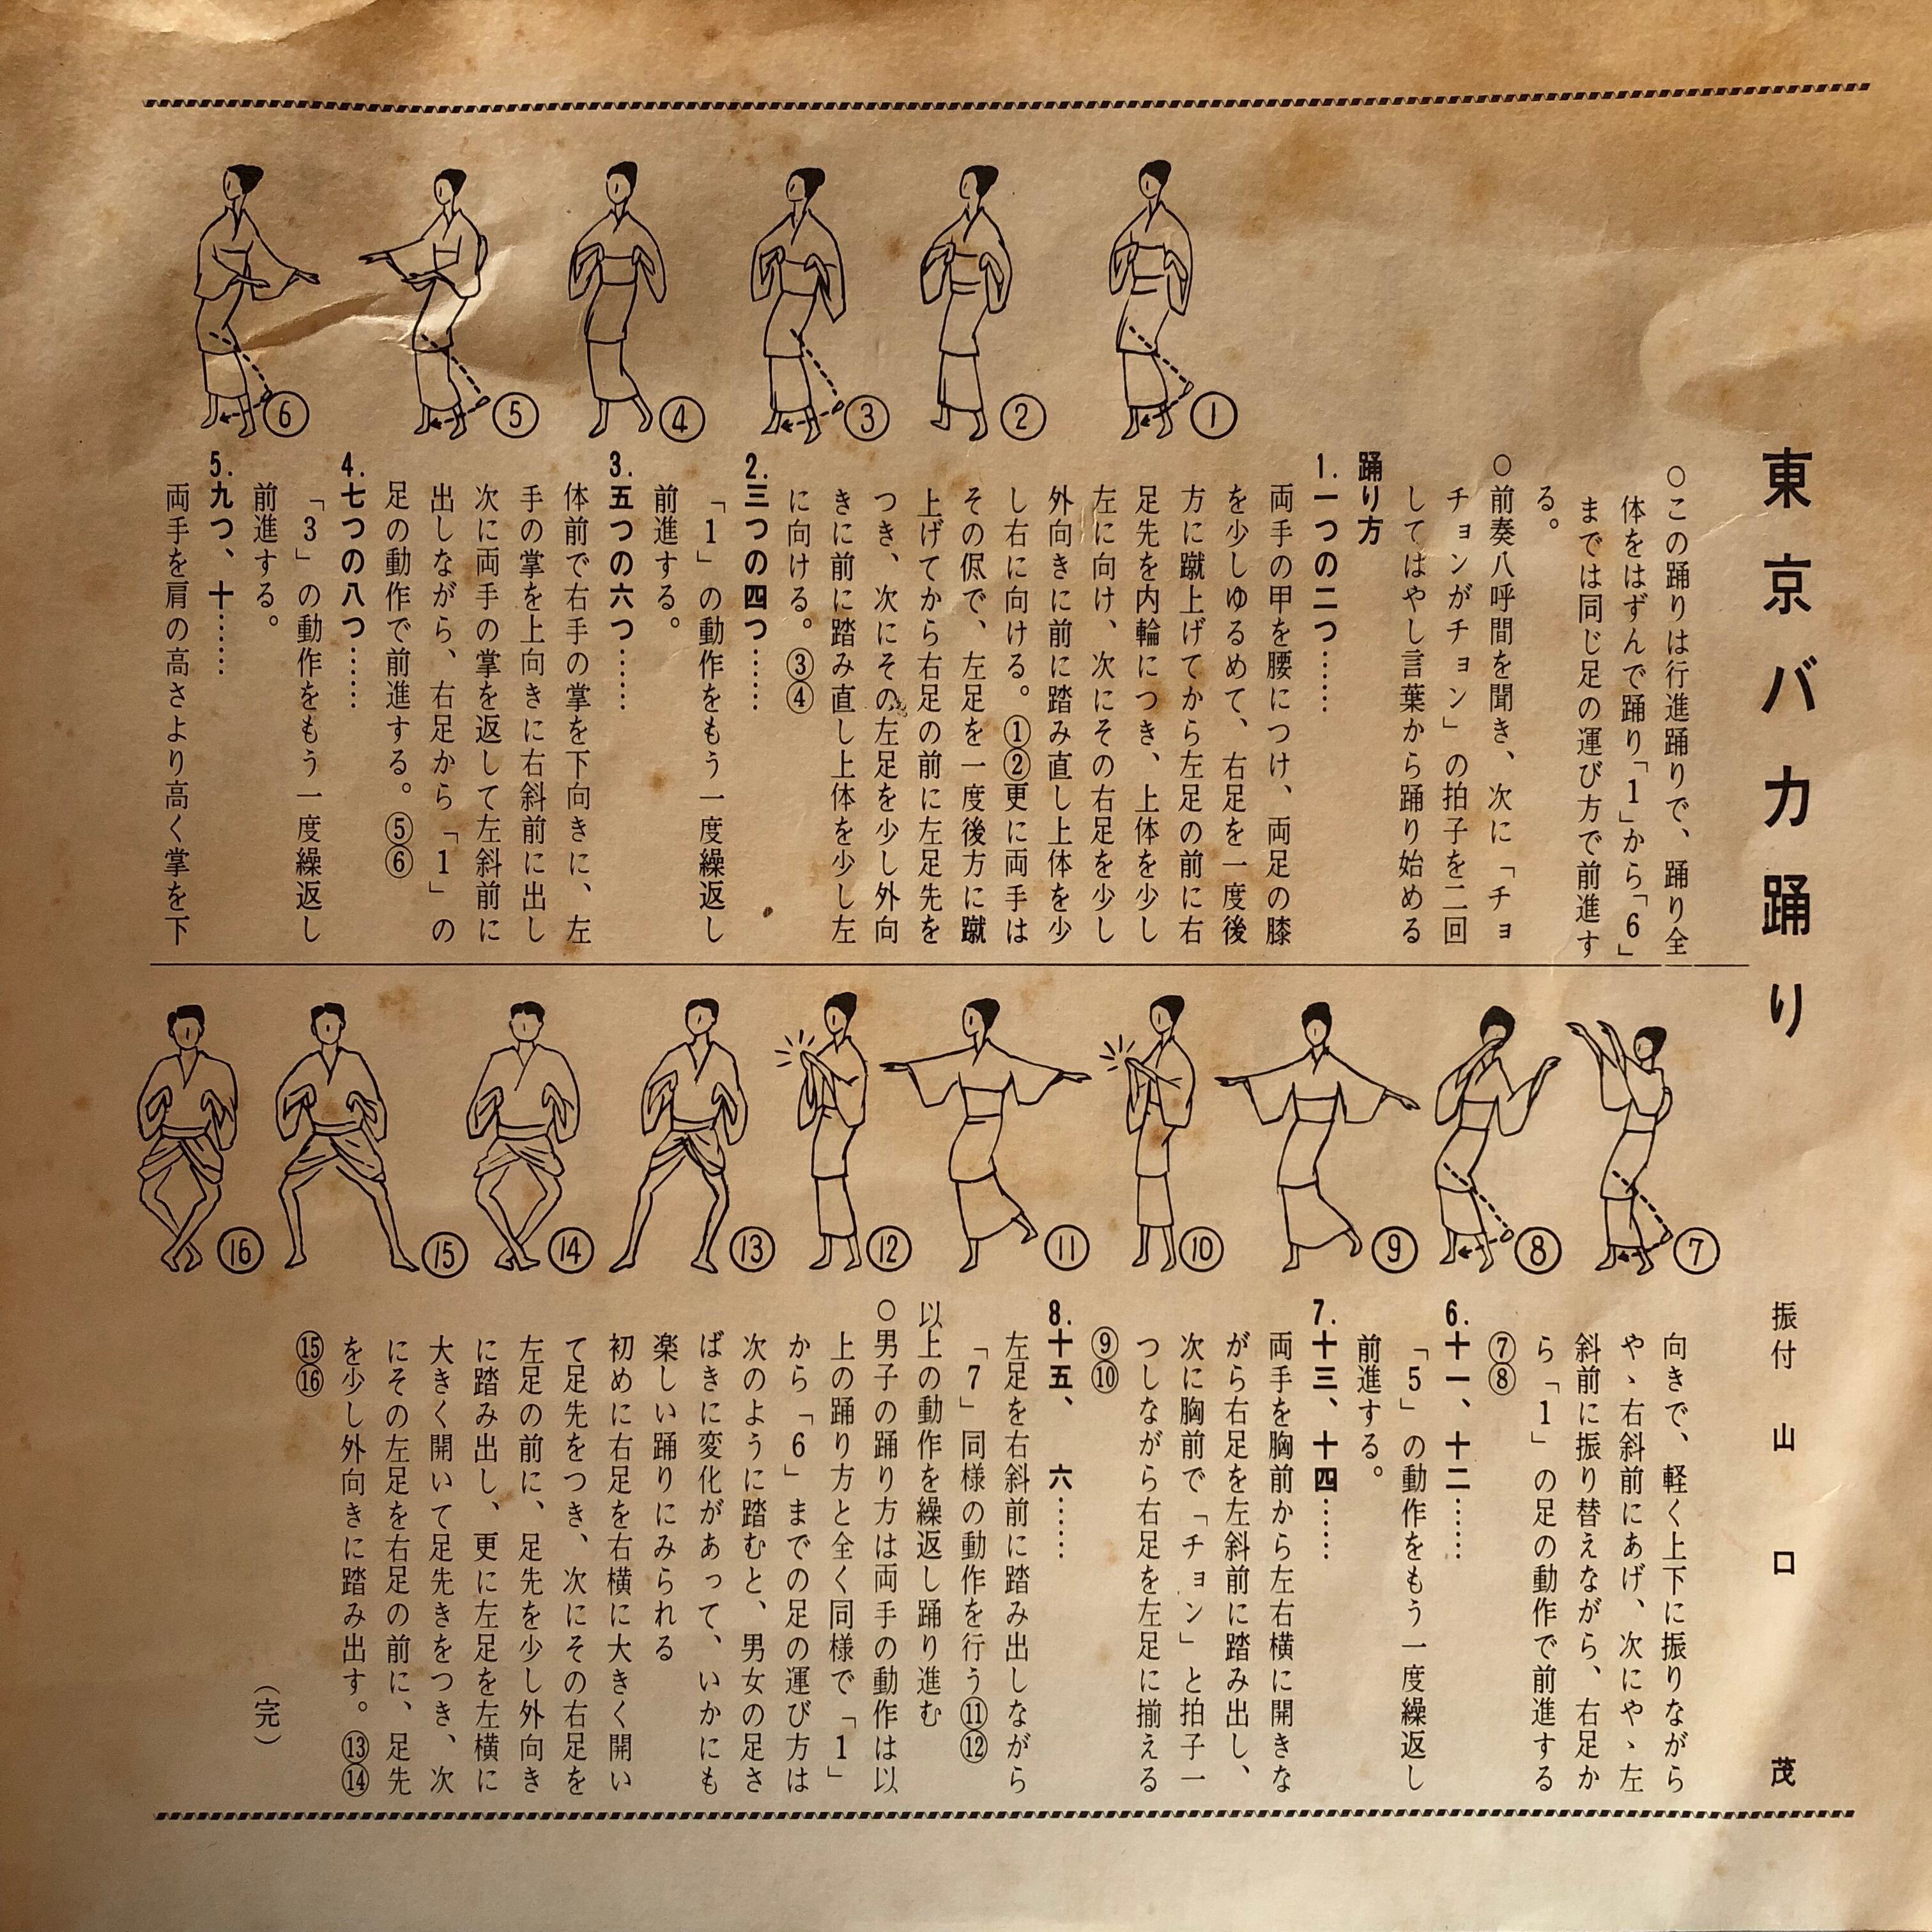 東京バカ踊り
振付 山口 茂
○この踊りは行進踊りで、踊り全
体をはずんで踊り「1」から「6」
までは同じ足の運び方で前進す
る。
○前奏八呼間を聞き、次に「チョ
チョンがチョン」の拍子を二回
してはやし言葉から踊り始める
踊り方
1.一つの二つ……
両手の甲を腰につけ、両足の膝
を少しゆるめて、右足を一度後
方に蹴上げてから左足の前に右
足先を内輪につき、上体を少し
左に向け、次にその右足を少し
外向きに前に踏み直し上体を少
し右に向ける。①②更に両手は
その侭で、左足を一度後方に蹴
上げてから右足の前に左足先を
つき、次にその左足を少し外向
きに前に踏み直し上体を少し左
に向ける。③④
2.三つの四つ……
「1」の動作をもう一度繰返し
前進する。
3.五つの六つ……
体前で右手の掌を下向きに、左
手の掌を上向きに右斜前に出し
次に両手の掌を返して左斜前に
出しながら、右足から「1」の
足の動作で前進する。⑤⑥
4.七つの八つ……
「3」の動作をもう一度繰返し
前進する。
5.九つ、十……
両手を肩の高さより高く掌を下
①
②
③
④
⑤
⑥
向きで、軽く上下に振りながら
やゝ右斜前にあげ、次にやゝ左
斜前に振り替えながら、右足か
ら「1」の足の動作で前進する
⑦⑧
6.十一、十二……
「5」の動作をもう一度繰返し
前進する。
7.十三、十四……
両手を胸前から左右横に開きな
がら右足を左斜前に踏み出し、
次に胸前で「チョン」と拍子一
つしながら右足を左足に揃える
⑨⑩
8.十五、六……
左足を右斜前に踏み出しながら
「7」同様の動作を行う⑪⑫
以上の動作を繰返し踊り進む
○男子の踊り方は両手の動作は以
上の踊り方と全く同様で「1」
から「6」までの足の運び方は
次のように踏むと、男女の足さ
ばきに変化があって、いかにも
楽しい踊りにみられる
初めに右足を右横に大きく開い
て足先をつき、次にその右足を
左足の前に、足先を少し外向き
に踏み出し、更に左足を左横に
大きく開いて足先きをつき、次
にその左足を右足の前に、足先
を少し外向きに踏み出す。⑬⑭
⑮⑯
(完)
⑦
⑧
⑨
⑩
⑪
⑫
⑬
⑭
⑮
⑯